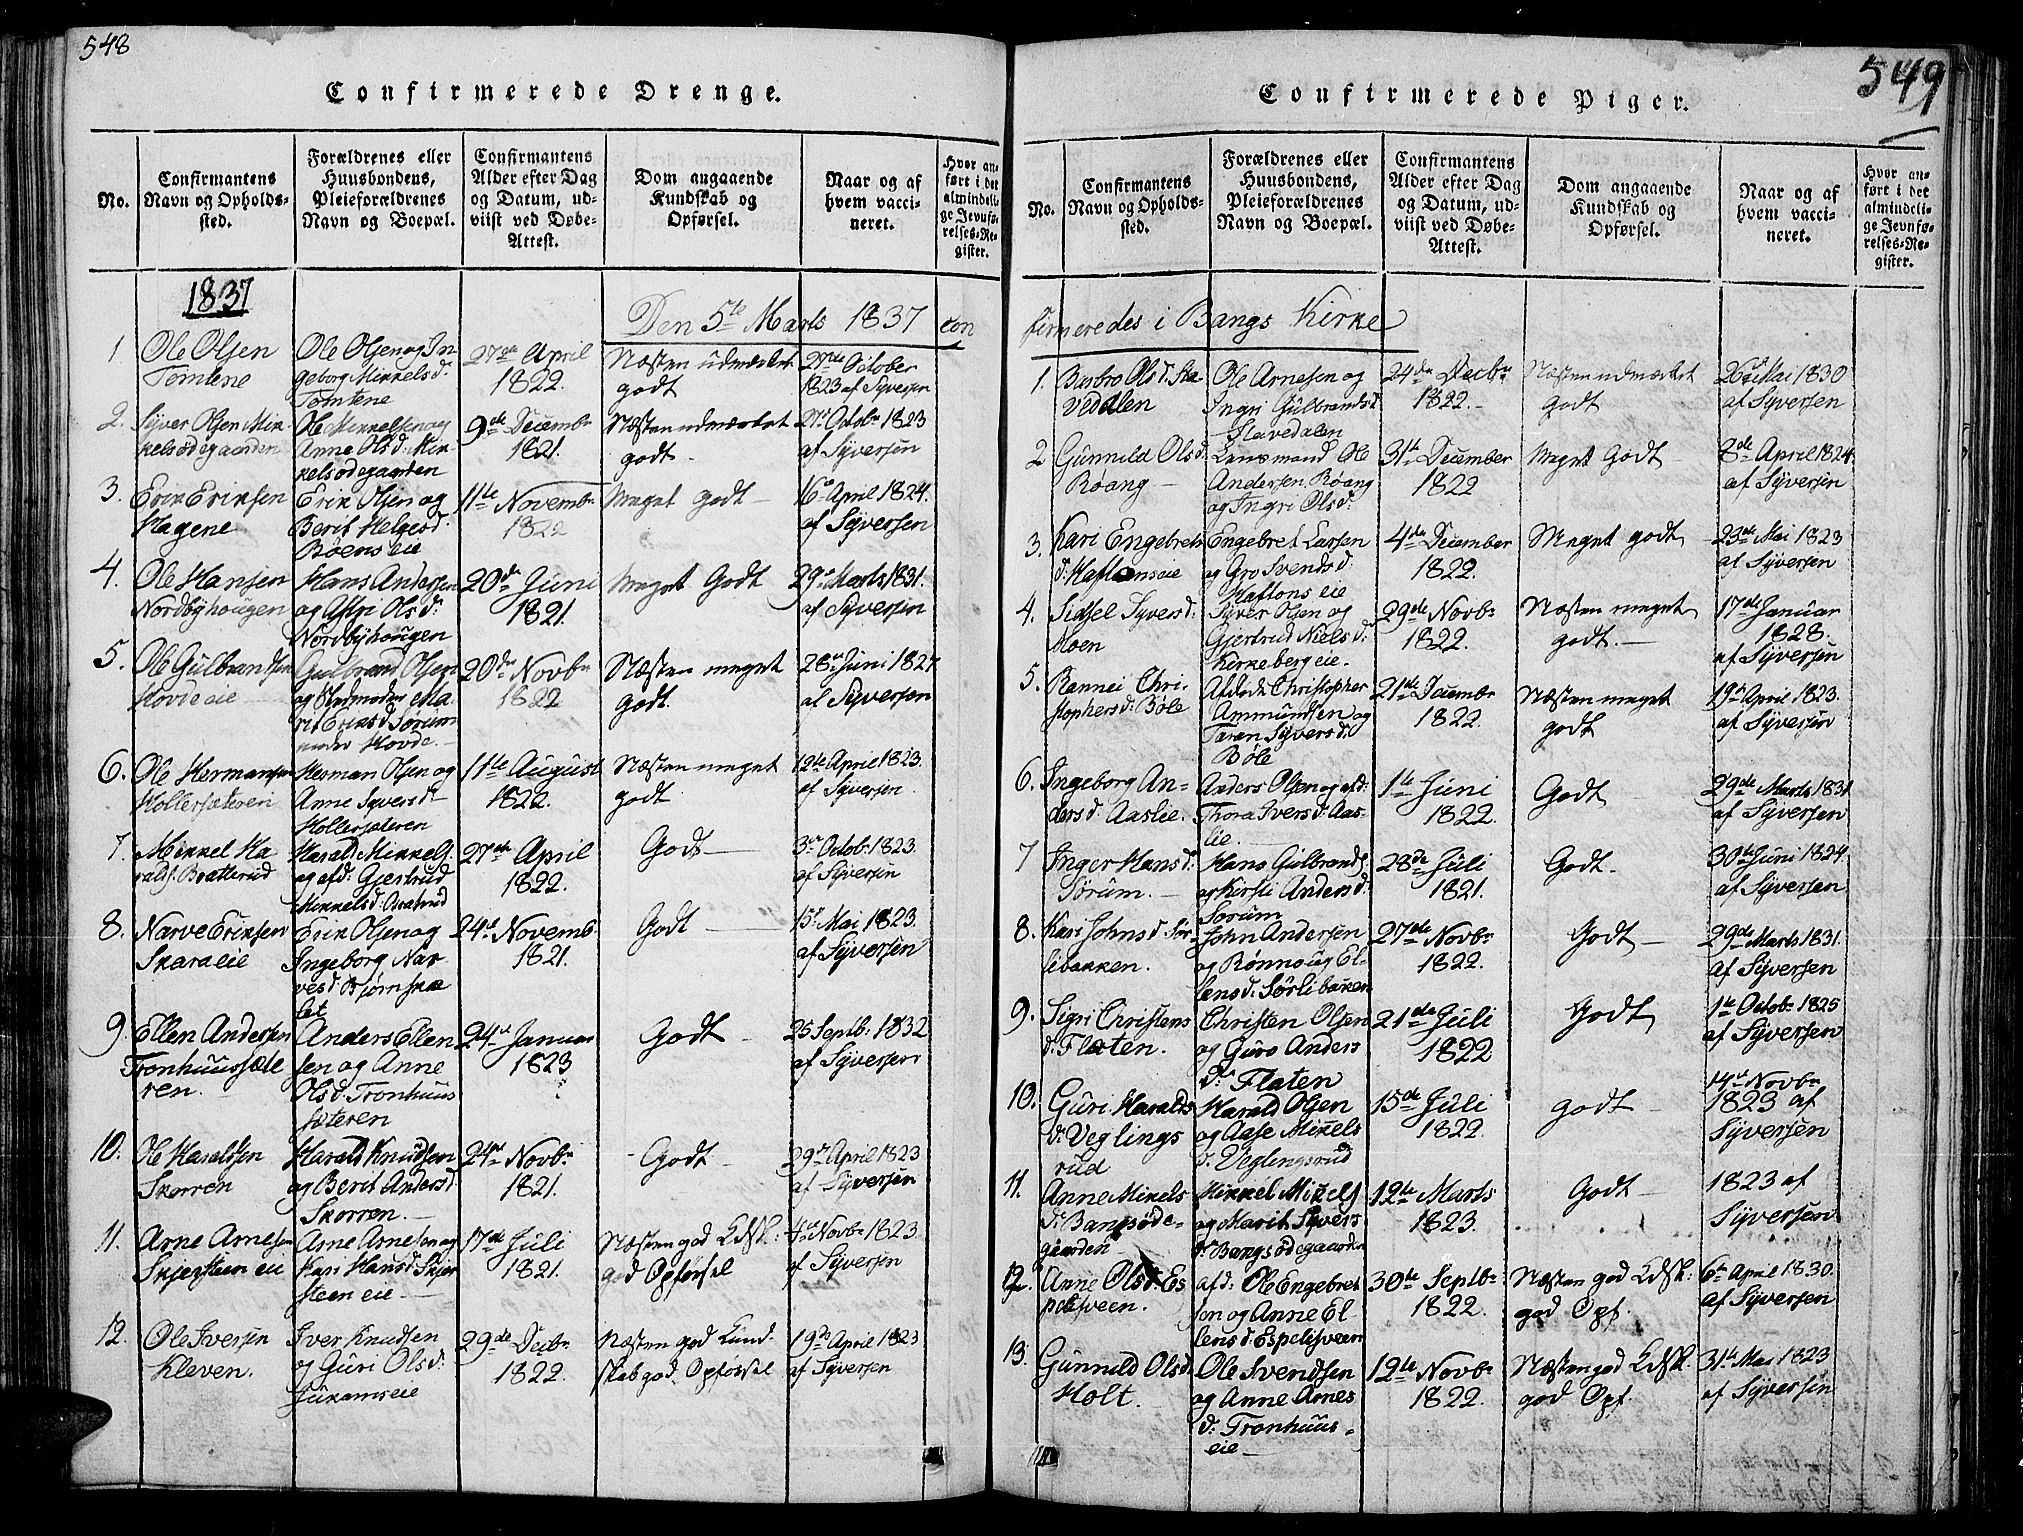 548
Confirmerede Drenge.
No.
Confirmantens
Navn og Opholds-
sted.
Forældrenes eller
Huusbondens,
Pleieforældrenes
Navn og Boepæl.
Confirmantens
Alder efter Dag
og Datum, ud-
viist ved Døbe-
Attest.
Dom angaaende
Kundskab og
Opførsel.
Naar og af
hvem vacci-
neret.
Hvor an-
ført i det
almindeli-
ge Jevnfø-
relses-Re-
gister.
1837
Den 5te Marts 1837 con
1
Ole Olsen
Tomlene
Ole Olsen og In-
geborg Mikkelsd:
Tomlene
27de April
1822.
Næsten udmærket
godt
27de October
1823 af Syversen
2.
Syver Olsen Mik-
kelsødegaarden
Ole Mikkelsen og
Anne Olsd: Mik-
kelsødegaarden
9de Decembr
1821.
Næsten udmærket
godt
27de Octobr 1823
af Syversen
3.
Erik Eriksen
Hagene
Erik Olsen og
Berit Helgesd:
Bøens eie
11te Novembr
1822
Meget godt
16de April 1824.
af Syversen
4.
Ole Hansen
Nordbyhougen
Hans Andersen
og Astri Olsd:
Nordbyhougen
20de Juni
1821.
Meget Godt
29de Marts 1831.
af Syversen
5.
Ole Gulbrandsen
Hovde eie
Gulbrand Olsen
og Ma-
rit Eriksd: Sørum
under Hovde.
20de Novbr
1822
Næsten meget
godt.
28de Juni 1827
af Syversen
6.
Ole Hermansen
Hollersæteren
Herman Olsen og
Anne Syversd:
Hollersæteren
11te August
1822.
Næsten meget
godt
12te April 1823.
af Syversen
7.
Mikkel Ha-
ralds. Brætterud
Harald Mikkels.
og afd: Gjertrud
Mikkelsd:
27de April
1822.
Godt
3de Octob: 1823.
af Syversen
8.
Narve Eriksen
Skara eie
Erik Olsen og
Ingeborg Nar-
vesd: Bjørnskæ
let
24de Novemb.
1821.
Godt
15de Mai 1823.
af Syversen
9.
Ellen Andersen
Tronhuussæte
ren.
Anders Ellen
sen og Anne
Olsd: Tronhuus
sæteren
24de Januar
1823
Godt
25 Septb: 1832
af Syversen
10.
Ole Haraldsen
Skorren
Harald Knudsen
og Berit Andersd:
Skorren.
24de Novbr
1821.
Godt
29de April 1823
af Syversen
11.
Arne Arnesen
Skjersteen eie
Arne Arnesen og
Kari Hansd: Skjer
steen eie
17de Juli
1821.
Næsten god Kdsk:
god Opførsel
4de Novbr 1823.
af Syversen
12.
Ole Iversen
Kleven.
Iver Knudsen
og Guri Olsd:
Jukamseie
29de Decbr
1822.
Næsten god Kund-
skab god Opførsel
19de April 1823
af Syversen
549
Confirmerede Piger.
No.
Confirmantens
Navn og Opholds-
sted.
Forældrenes eller
Huusbondens,
Pleieforældrenes
Navn og Boepæl.
Confirmantens
Alder efter Dag
og Datum, ud-
viist ved Døbe-
Attest.
Dom angaaende
Kundskab og
Opførsel.
Naar og af
hvem vacci-
neret.
Hvor an-
ført i det
almindeli-
ge Jevnfø-
relses-Re-
gister.
firmeredes i Bangs Kirke
1.
Barbro Olsd: Sla
vedalen
Ole Arnesen og
Ingri Gulbrandsd:
Slavedalen
24de Decbr
1822.
Næsten udmærket
godt
26de Mai 1830
af Syversen
2
Gunnild Olsd:
Røang
Lensmand Ole
Andersen Røang
og Ingri Olsd:
31te December
1822
Meget Godt
8de April 1824.
af Syversen
3.
Kari Engebrets
d: Haftonseie
Engebret Larsen
og Gro Svendsd:
Haftons eie
4de December
1822.
Meget godt
23de Mai 1823
af Syversen
4.
Sidsel Syversd:
Moen
Syver Olsen og
Gjertrud Nielsd:
Kirkeberg eie.
29de Novbr
1822.
Næsten meget
godt.
17de Januar
1828.
af Syversen
5.
Rannei Chri-
stophersd: Bøle
Christopher
Ammundsen og
Taran Syversd:
Bøle
21de Decembr
1822.
Næsten meget
godt
19de April 1823.
af Syversen
6.
Ingeborg An-
dersd: Aaslie.
Anders Olsen og afd:
Thora Iversd: Aas-
lie.
1te Juni
1822.
Godt
29de Marts 1831
af Syversen
7
Inger Hansd:
Sørum.
Hans Gulbrands.
og Kirsti Andersd:
Sørum
28de Juli
1821.
Godt.
30te Juni 1824.
af Syversen
8.
Kari Johnsd: Sør-
libakken.
John Andersen
og Rønnoug El-
lensd: Sørlibakken
27de Novbr
1822.
Godt
29de Marts 1831.
af Syversen
9.
Sigri Christens
d: Flaten.
Christen Olsen
og Guro Anders
d: Flaten
21de Juli
1822
Godt
1te Octobr 1825
af Syversen
10.
Guri Haralds
d: Veglings
rud
Harald Olsen
og Aase Mikkels
d: Veglingsrud
15de Juli
1822.
godt
14de Novbr
1823 af
Syversen
11.
Anne Mikels
d: Bangsøde-
gaarden
Mikkel Mikels
og Marit Syvers
d: Bangsødegaarden
12te Marts
1823.
Godt
1823 af
Syversen
12.
Anne Olsd: Es
pelisveen.
afd: Ole Engebret
sen og Anne El
lensd: Espelisveen
30te Septbr
1822.
Næsten god Kdsk:
god Opf.
6te April 1830.
af Syversen
13.
Gunnild Olsd:
Holt.
Ole Svendsen
og Anne Arnes
d: Tronhuus-
eie
12te Novbr
1822.
Næsten god Kdsk.
god Opf.
31te Mai 1823
af Syversen